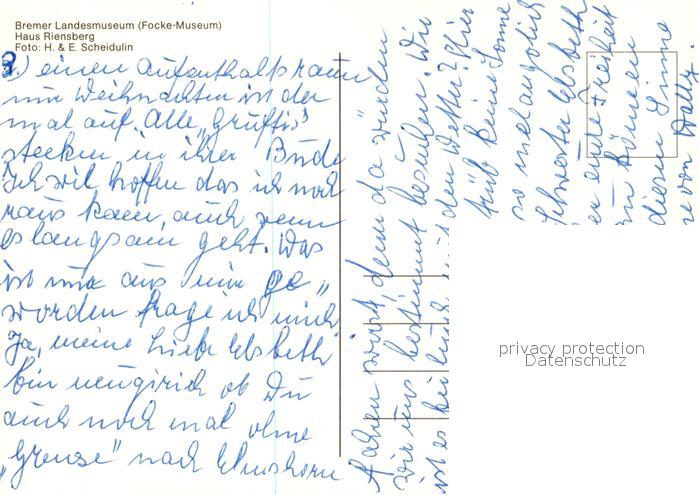 Bremer Landesmuseum (Focke-Museum)
Haus Riensberg
Foto: H. & E. Scheidulin
2.) einen Aufenthaltsraum
nur Weihnachten ist der
mal auf. Alle „Gruftis"
stecken in ihrer Bude
Ich will hoffen das ich noch
raus kann, auch wenn
es langsam geht. Was
ist nur aus mir ge„
worden frage ich mich
Ja, meine liebe Elsbeth
bin neugirich ob Du
auch noch mal ohne
„Grense" nach Elmshorn
fahren wirst, denn da würden
wir uns bestimmt besuchen. Wie
ist es bei Euch mit den Wetter? Hier
trüb keine Sonne
so melangolich
Schwester Elsbeth
er ende Freiheit
zu können
diesem Sinne
von Wally.
privacy protection
Datenschutz